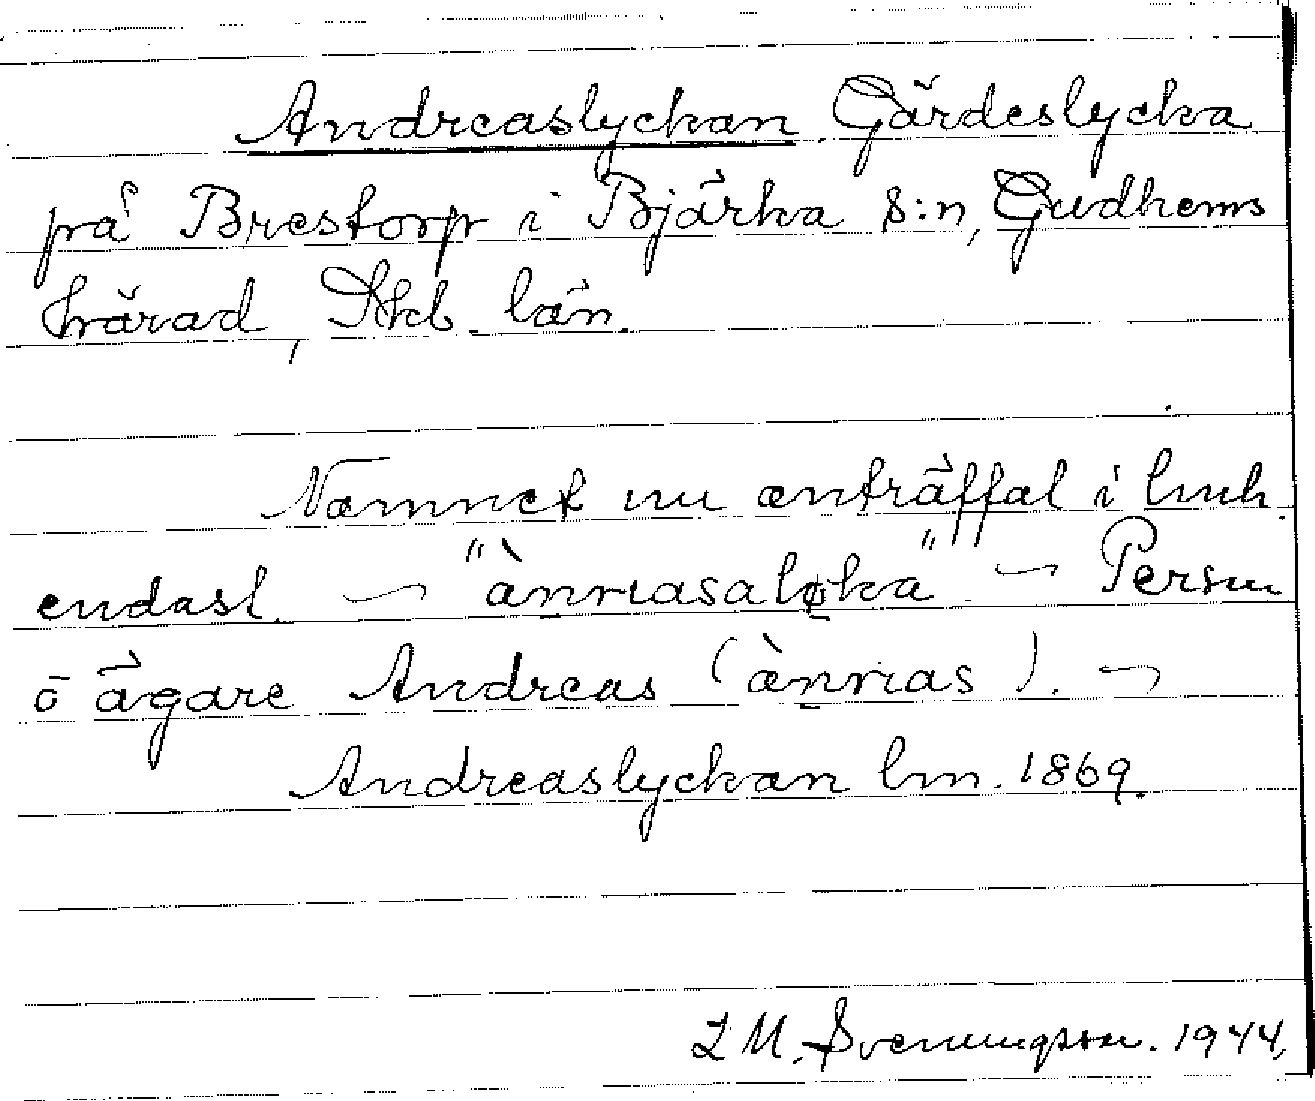 Andreaslyckan Gärdeslycka
på Brestorp i Bjärka s:n, Gudhems
härad, Skb. län.
Namnet nu anträffat i bruk
endast — "ànnasaløka" — Person
o ägare Andreas (ànnas). —
Andreaslyckan lm. 1869.
L M. Svenungsson. 1944.